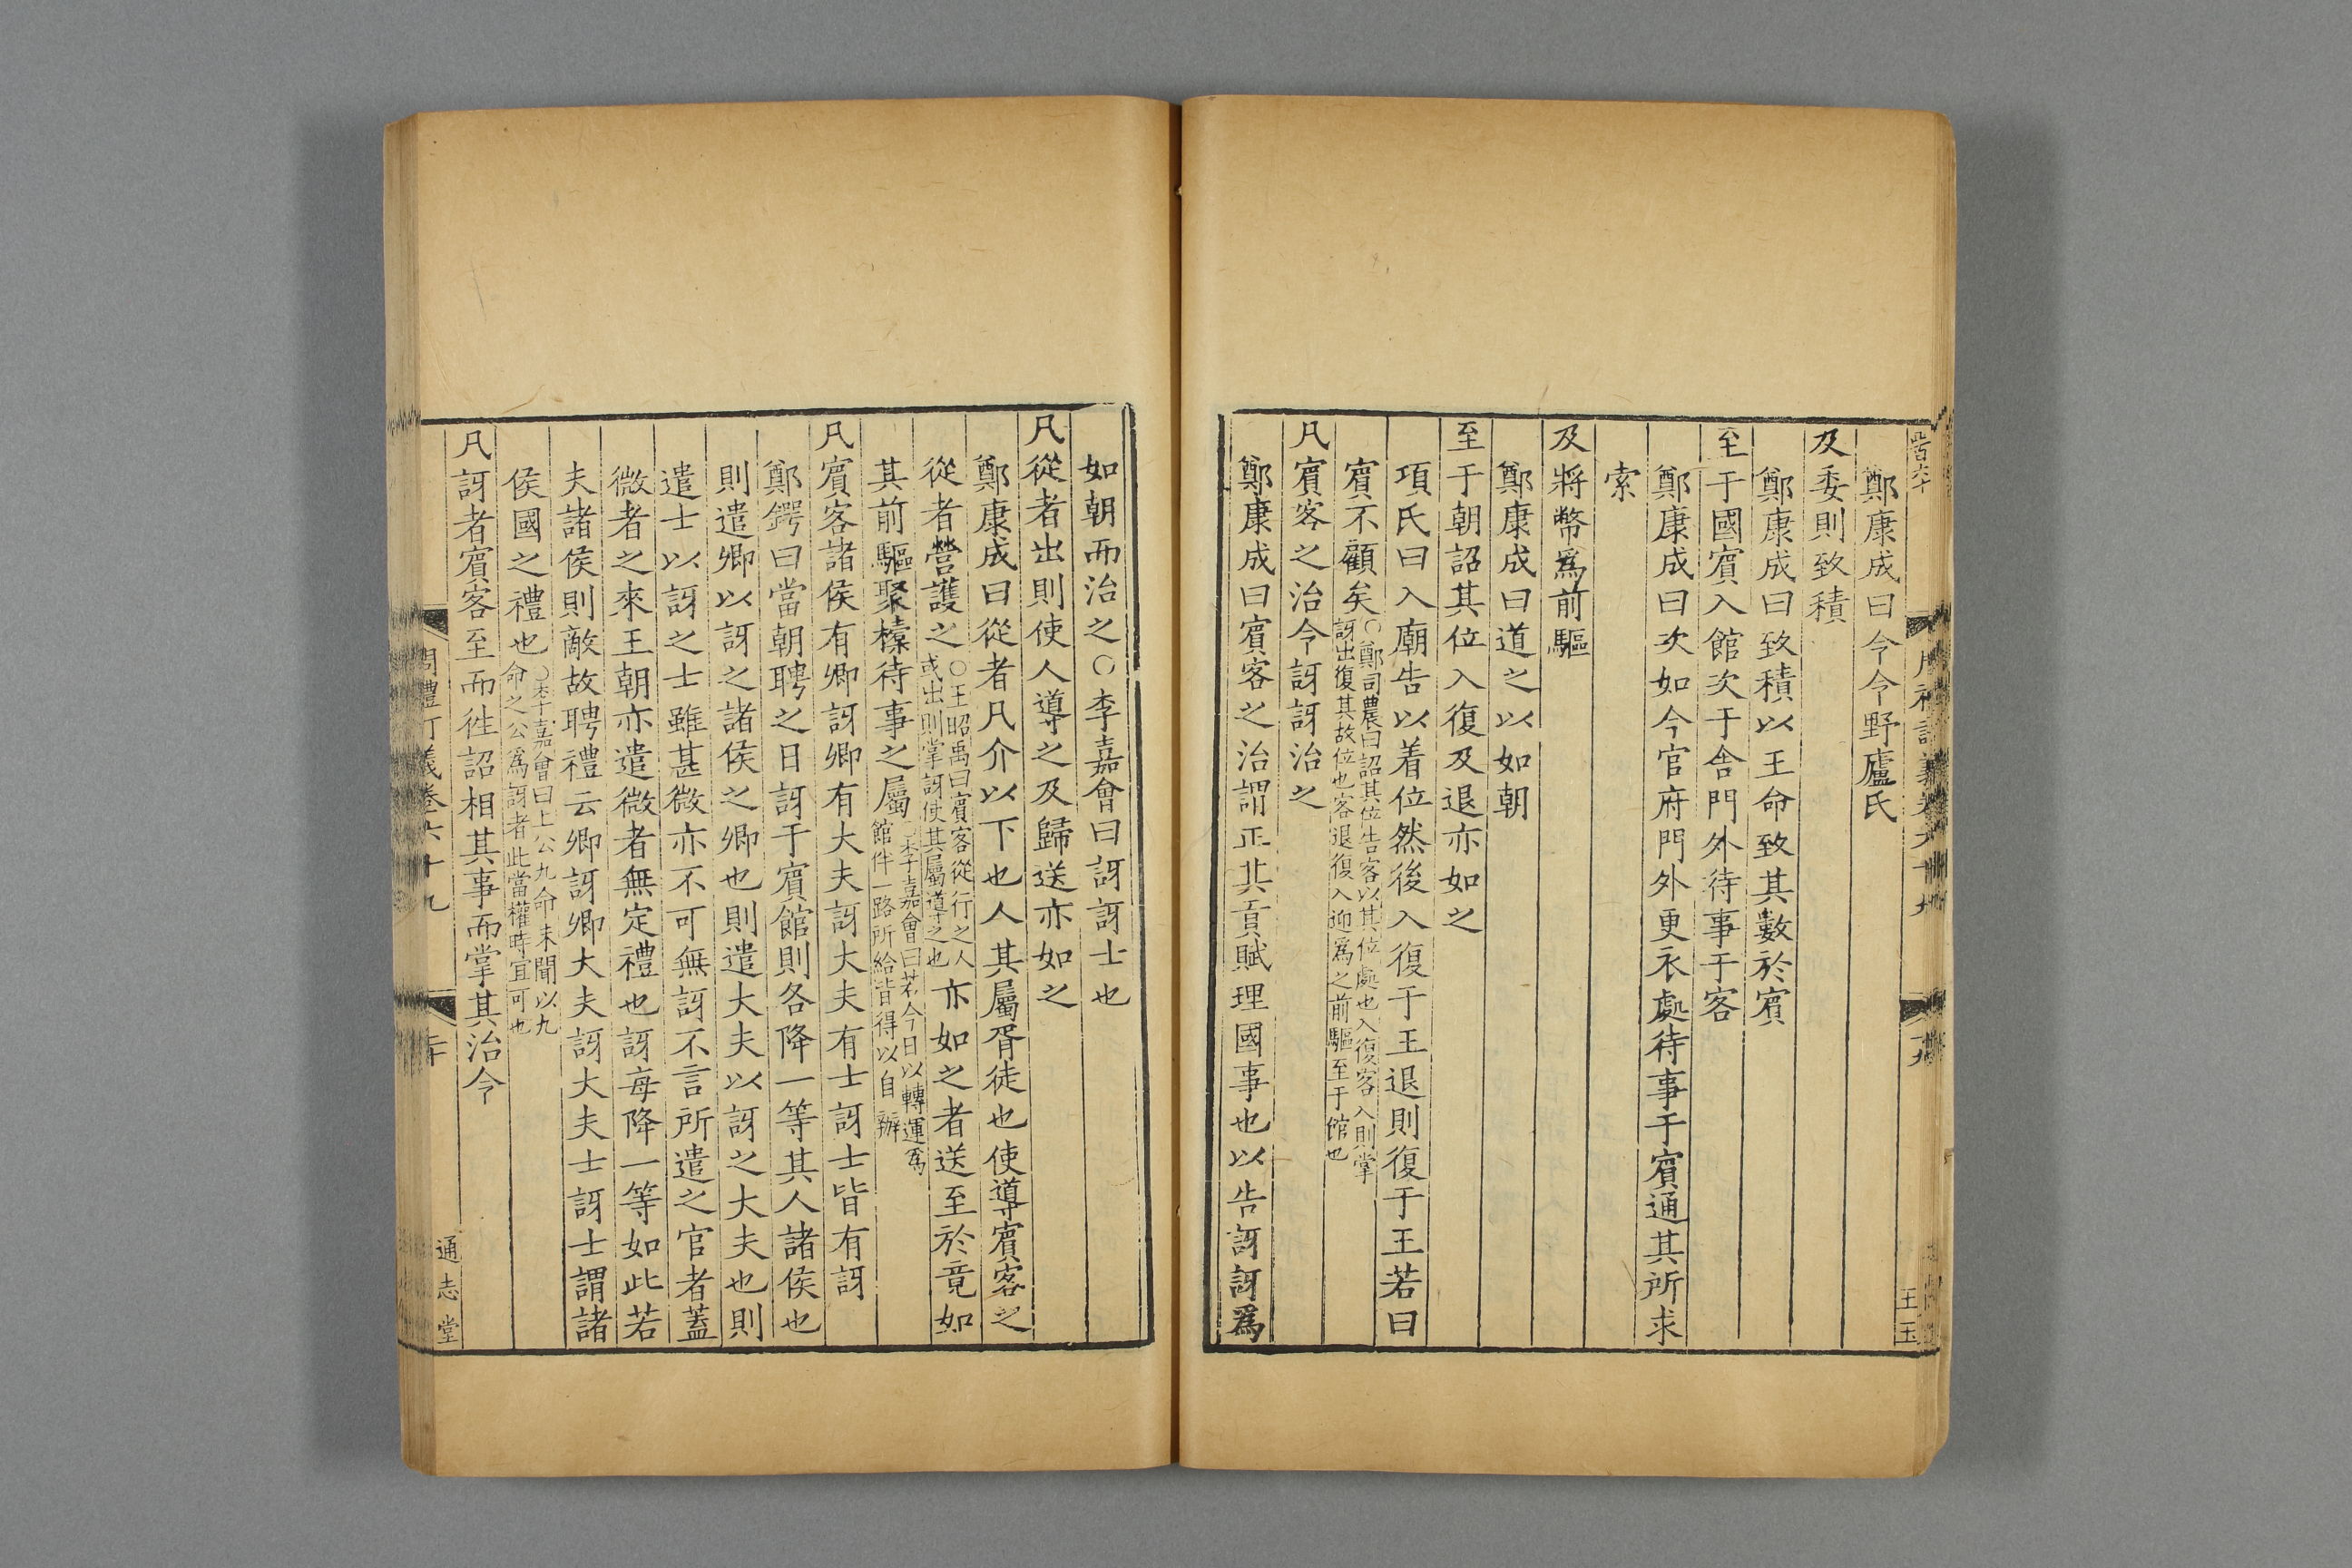 鄭康成曰令令野廬氏
及委則致積
鄭康成曰致積以王命致其數於賓
至于國賓入館次于舍門外待事于客
鄭康成曰次如今官府門外更衣處待事于賓通其所求
索
及將幣爲前驅
鄭康成曰道之以如朝
至于朝詔其位入復及退亦如之
項氏曰入廟告以着位然後入復于王退則復于王若曰
賓不顧矣○鄭司農曰詔其位告客以其位處也入復客入則掌
訝出復其故位也客退復入迎爲之前驅至于館也
凡賓客之治令訝訝治之
鄭康成曰賓客之治謂正其貢賦理國事也以告訝訝爲
如朝而治之○李嘉會曰訝訝士也
凡從者出則使人導之及歸送亦如之
鄭康成曰從者凡介以下也人其屬胥徒也使導賓客之
從者營護之○王昭禹曰賓客從行之人
或出則掌訝使其屬導之也亦如之者送至於竟如
其前驅聚㯓待事之屬○李嘉會曰若今日以轉運爲
館伴一路所給皆得以自辦
凡賓客諸侯有卿訝卿有大夫訝大夫有士訝士皆有訝
鄭鍔曰當朝聘之日訝于賓館則各降一等其人諸侯也
則遣卿以訝之諸侯之卿也則遣大夫以訝之大夫也則
遣士以訝之士雖甚微亦不可無訝不言所遣之官者蓋
微者之來王朝亦遣微者無定禮也訝每降一等如此若
夫諸侯則敵故聘禮云卿訝卿大夫訝大夫士訝士謂諸
侯國之禮也○李嘉會曰上公九命未聞以九
命之公爲訝者此當權時宜可也
凡訝者賓客至而徃詔相其事而掌其治令
周禮訂義卷六十九
二十
通志堂